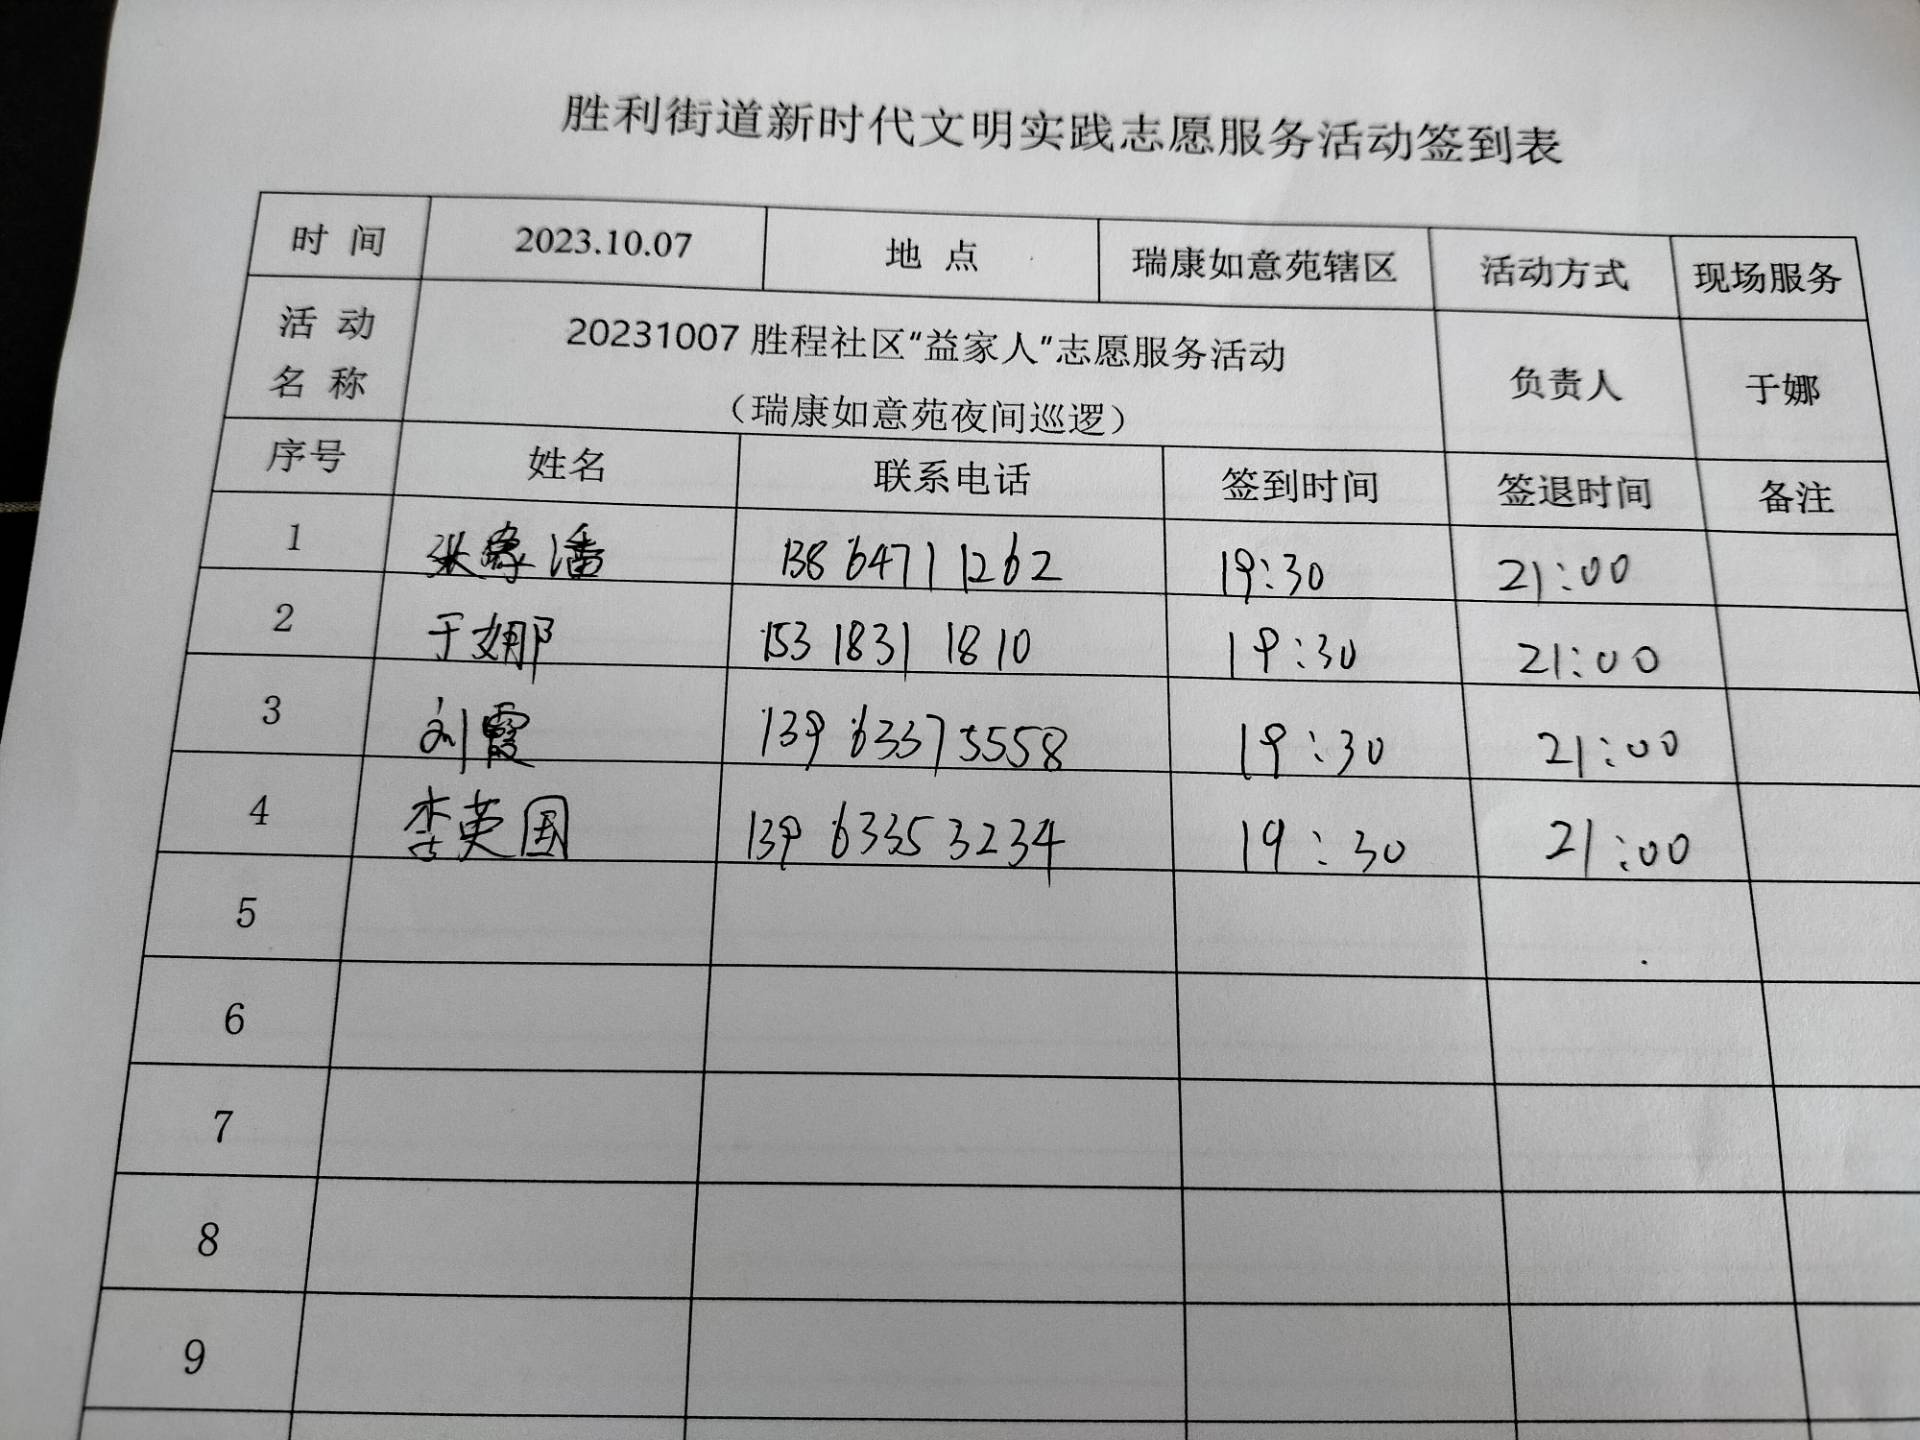 胜利街道新时代文明实践志愿服务活动签到表
时 间 2023.10.07 地 点 瑞康如意苑辖区 活动方式 现场服务
活 动 名 称 20231007 胜程社区“益家人”志愿服务活动 负责人 于娜
（瑞康如意苑夜间巡逻）
序号 姓名 联系电话 签到时间 签退时间 备注
1 张 潘 13864711262 19:30 21:00
2 于娜 15318311810 19:30 21:00
3 刘霞 13963375558 19:30 21:00
4 李英国 13963353234 19:30 21:00
5
6
7
8
9